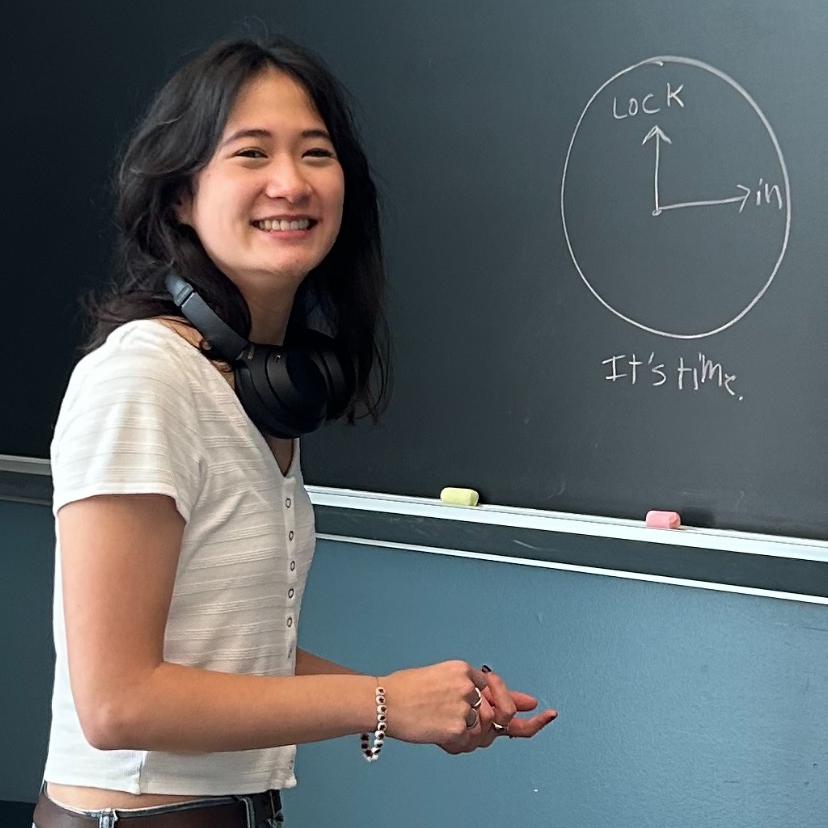 LOCK
in
It's time.